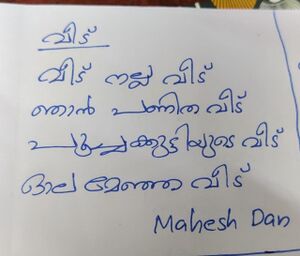 വീട്
വീട് നല്ല വീട്
ഞാൻ പണിത വീട്
പൂച്ചക്കുട്ടിയുടെ വീട്
ഓല മേഞ്ഞ വീട്
Mahesh Dan